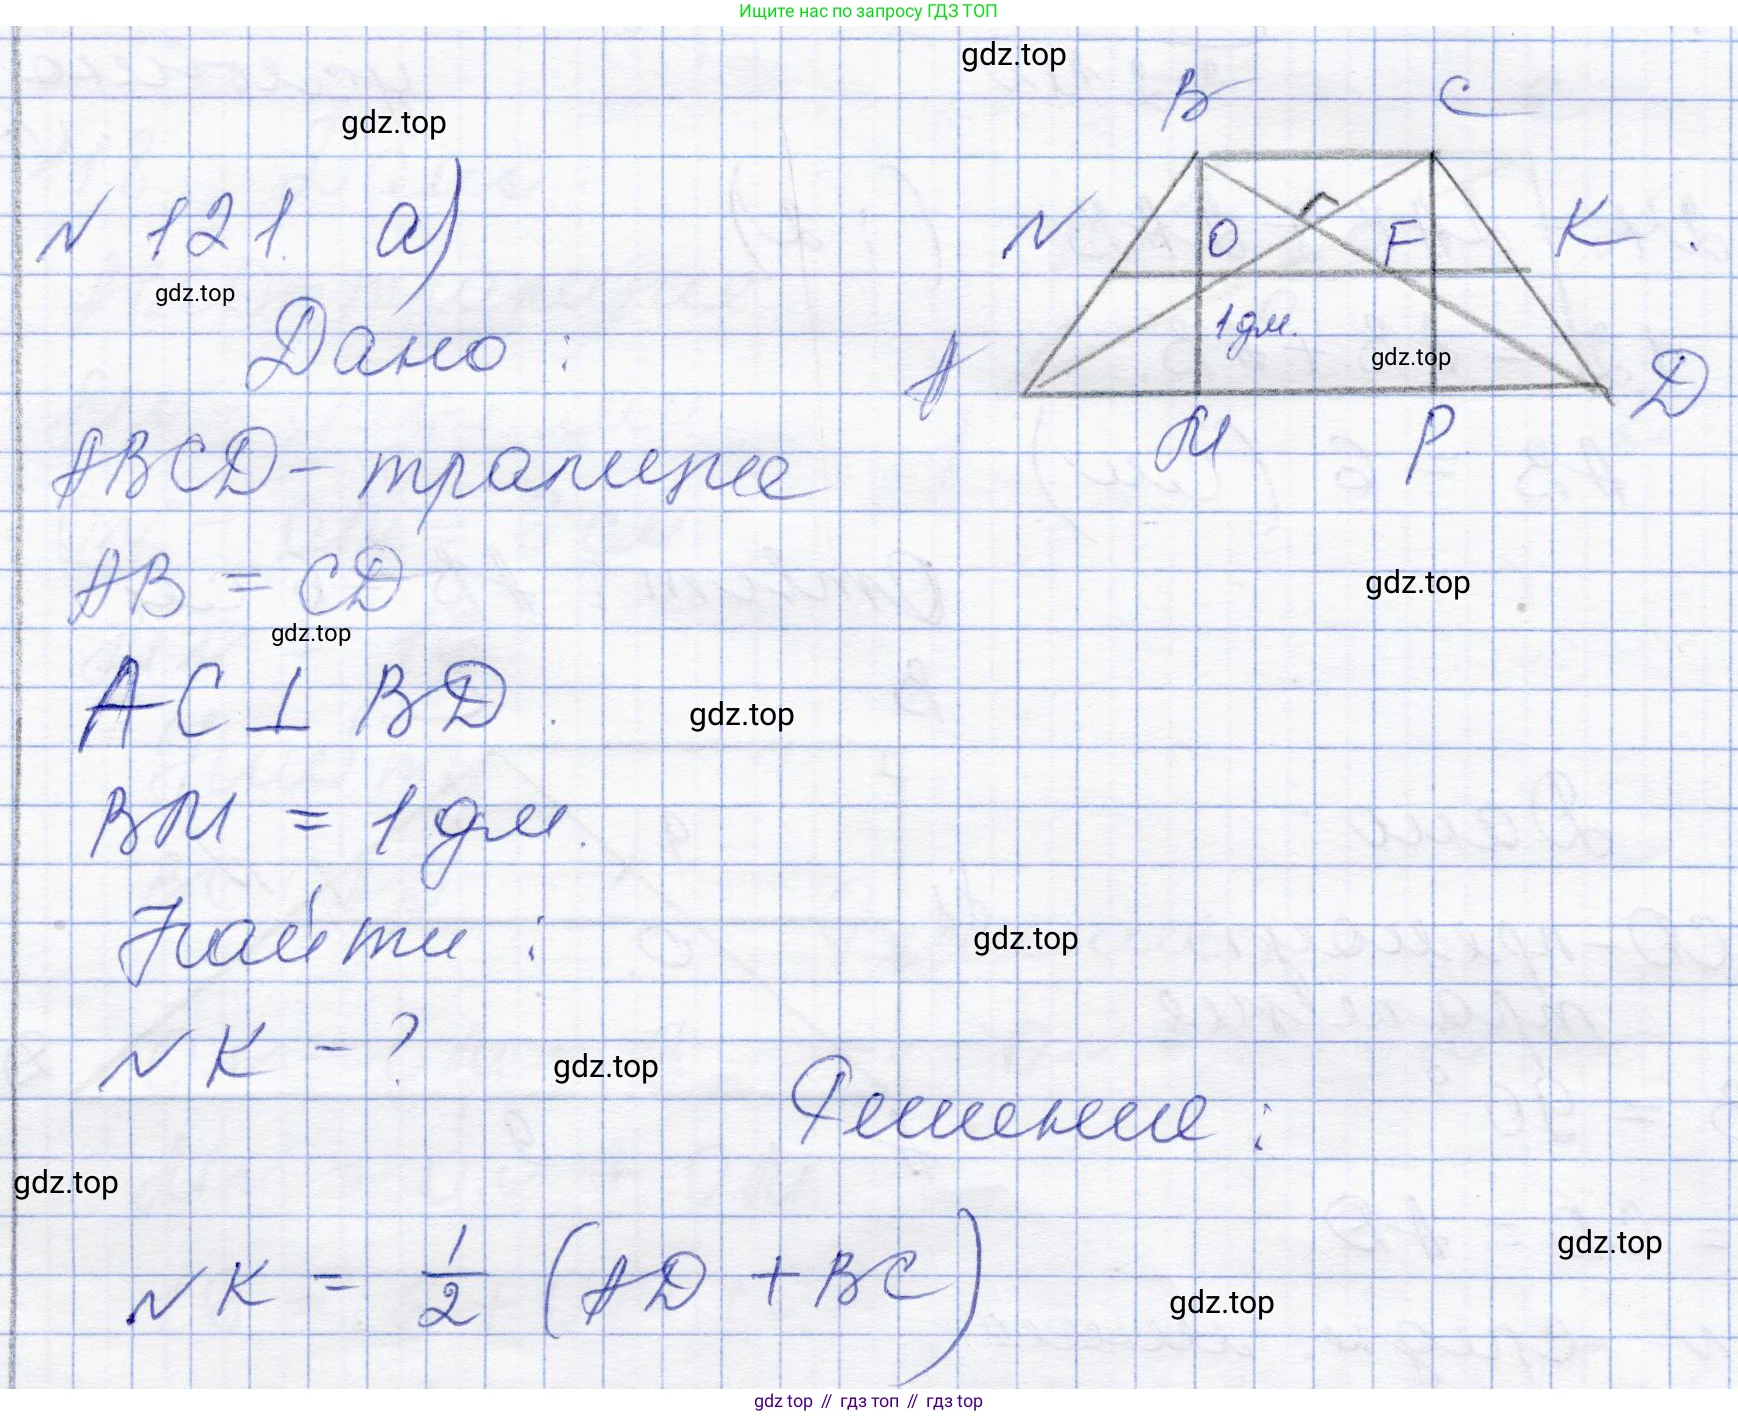 Ищите нас по запросу ГДЗ ТОП
gdz.top
B C
gdz.top
N 121. а)
N O F K
gdz.top
Дано:
1 дм.
gdz.top
A D
M P
ABCD - трапеция
AB = CD
gdz.top
gdz.top
AC ⊥ BD.
gdz.top
BM = 1 дм.
Найти:
gdz.top
NK - ?
gdz.top
Решение:
gdz.top
gdz.top
NK = 1/2 (AD + BC)
gdz.top
gdz top // гдз топ // гдз top